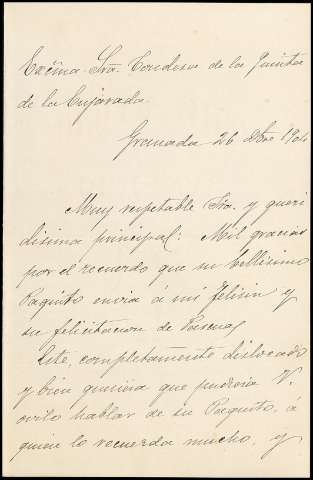 Excma. Sra. Condesa de la Quinta
de la Enjarada.
Granada 26 Dbre 1904
Muy respetable Sra. y queri
disima principal: Mil gracias
por el recuerdo que su bellisimo
Paquito envia á mi Felisin y
su felicitacion de Pascuas
Este, completamente dislocado
y bien quisiera que pudiera V.
oirlo hablar de su Paquito, á
quien lo recuerda mucho, y